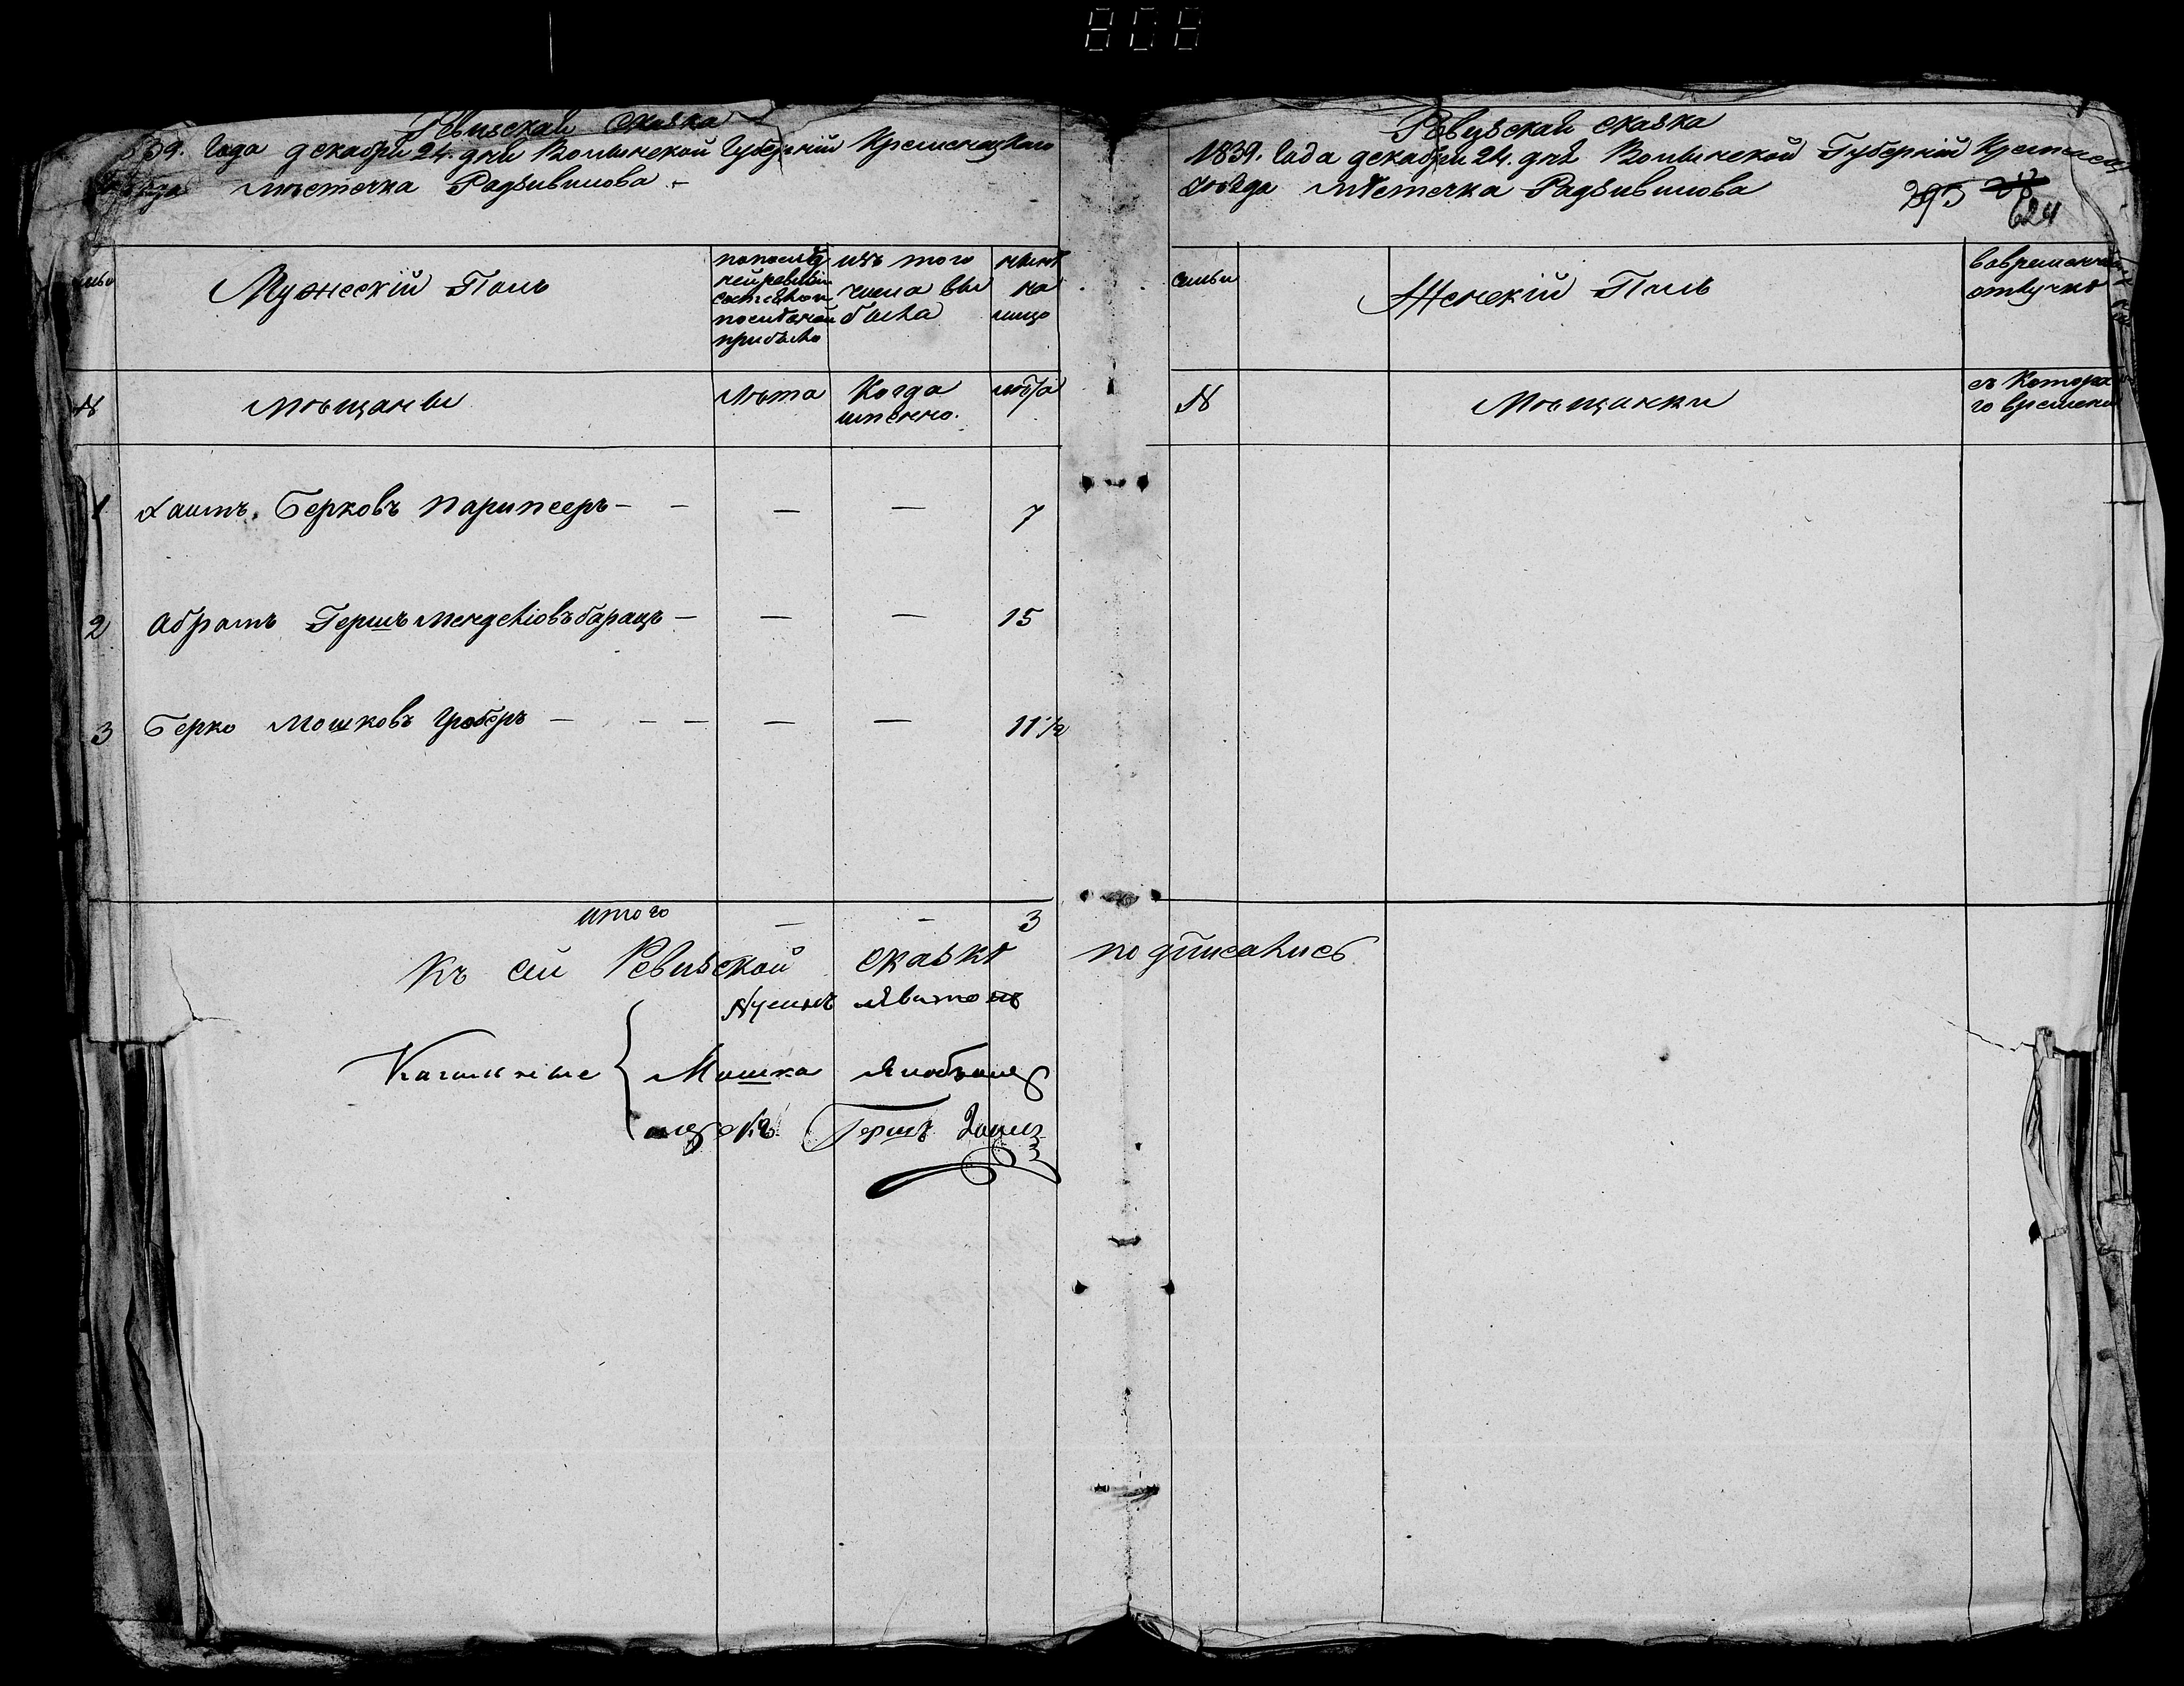 808
Ревизская сказка
1839. Года декабря 24. дня Волынской Губерніи Кременецкаго
уѣзда мѣстечка Радзивилова
семьи
Мужескій Полъ
попослѣд
ней ревизіи
состояло и
после оной
прибыло
изъ того
числа вы
было
нынѣ
на
лицо
№
Мѣщаны
Лѣта
Когда
имянно.
лѣта
1 Хаимъ Берковъ Парипсеръ — — — — 7
2 Абрамъ Гершъ Менделіовъ барацъ — — — 15
3 Берко Мошковъ Гроберъ — — — — — 11 1/2
итого — — 3
Къ сей Ревизской сказкѣ подписались
Кагальные
Мошка
Гершъ
Ревизская сказка
1839. Года декабря 24. дня Волынской Губерніи Кременец
уѣзда Мѣстечка Радзивилова
295
624
семьи
Женскій Полъ
вовременной
отлучкѣ
№
Мѣщанки
съ Котора
го времени